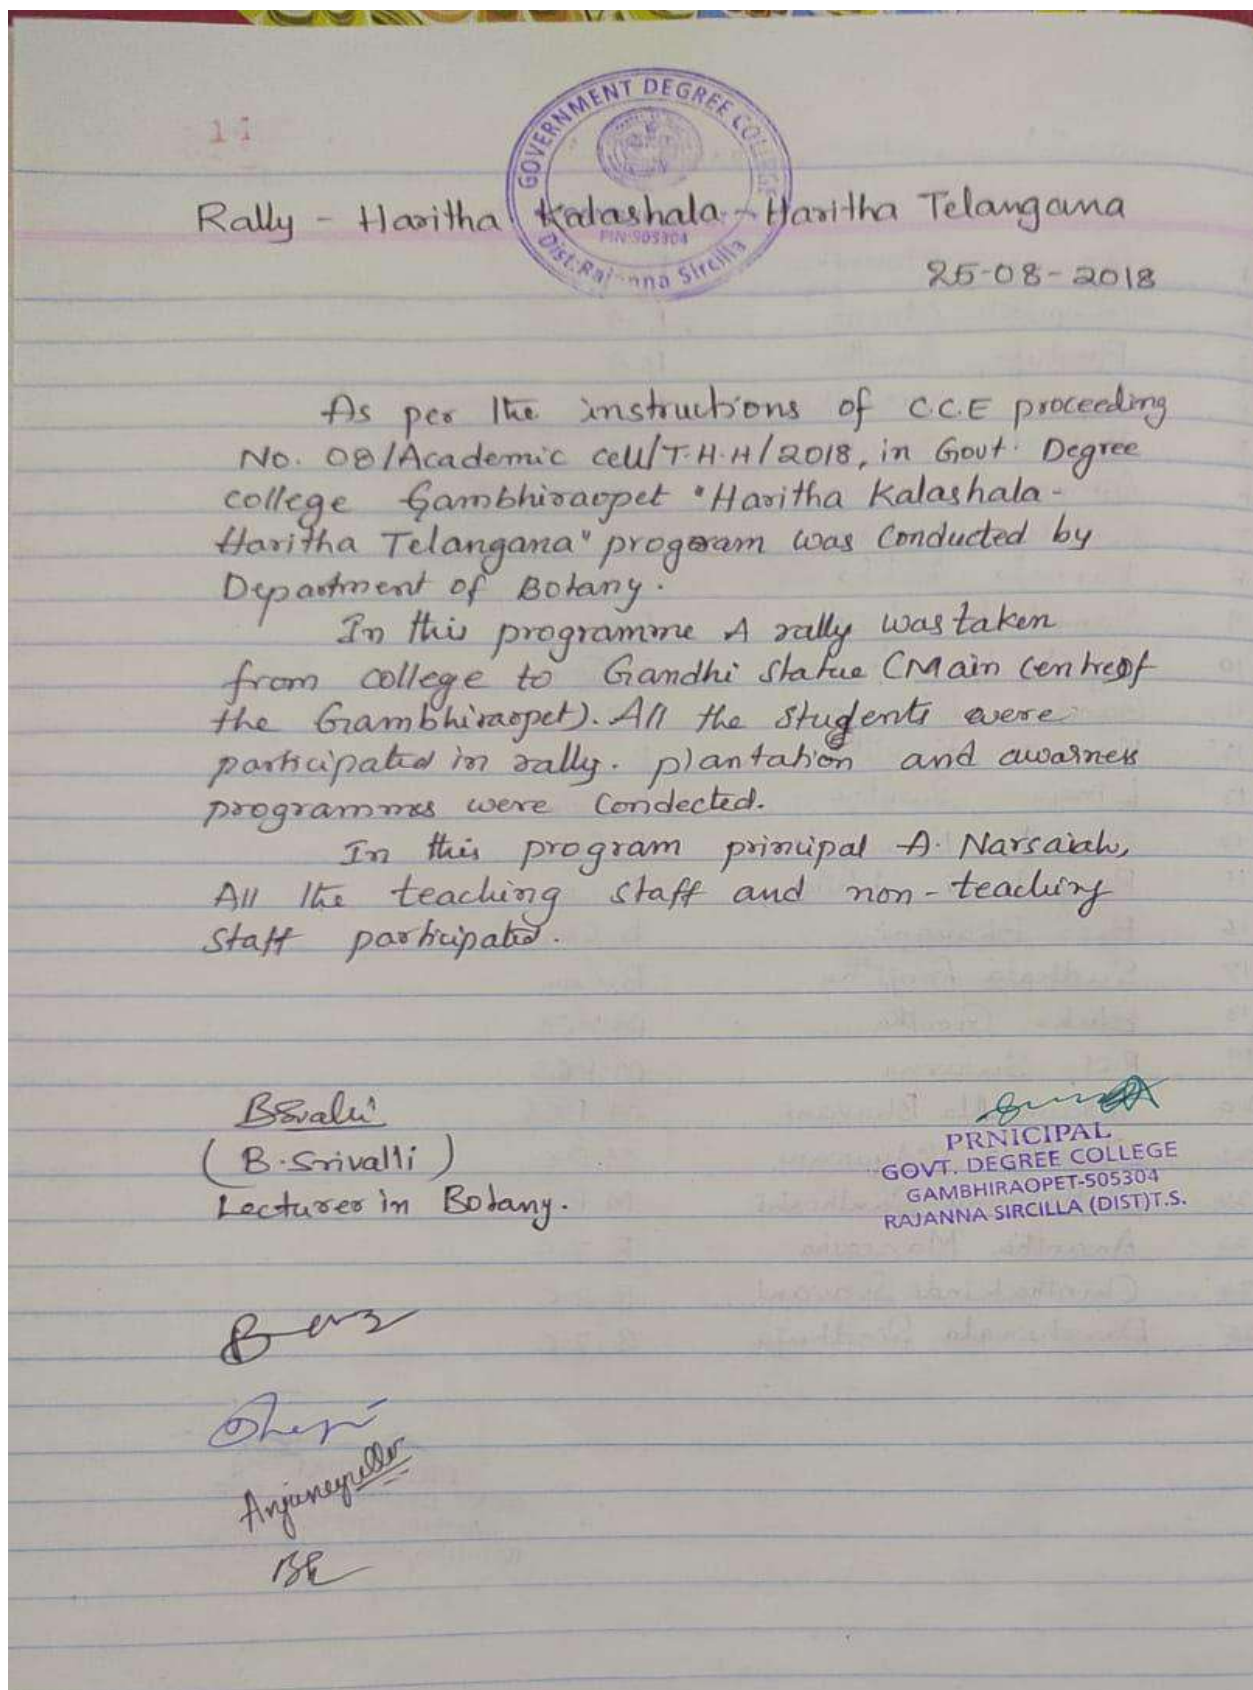 11
GOVERNMENT DEGREE COLLEGE
Rally - Haritha Kalashala - Haritha Telangana
PIN:505304
Dist:Rajanna Sircilla
25-08-2018
As per the instructions of C.C.E proceeding
No. 08/Academic cell/T.H.H/2018, in Govt. Degree
college Gambhiraopet "Haritha Kalashala -
Haritha Telangana" program was Conducted by
Department of Botany.
In this programme A rally was taken
from college to Gandhi statue (Main centre of
the Gambhiraopet). All the students were
participated in rally. plantation and awarness
programmes were Condected.
In this program principal A. Narsaiah,
All the teaching staff and non-teaching
staff participated.
(B. Srivalli)
Lecturer in Botany.
PRNICIPAL
GOVT. DEGREE COLLEGE
GAMBHIRAOPET-505304
RAJANNA SIRCILLA (DIST)T.S.
Anjaneyullu